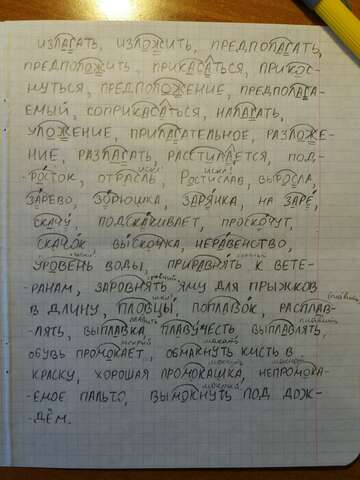 излагать, изложить, предполагать,
предположить, прикасаться, прикос-
нуться, предположение, предполага-
емый, соприкасаться, налагать,
уложение, прилагательное, разложе-
ние, разлагать, расстилается, под-
искл!
-росток, отрасль, Ростислав, выросла,
зарево, зорюшка, зарянка, на заре,
скачу, подскакивает, проскочут,
скачок выскочка, неравенство,
искл!
уровень воды, приравнять к вете-
ровный
-ранам, заровнять яму для прыжков
искл! плавить
в длину, пловцы, поплавок, расплав-
плавить плавить
-лять, выплавка плавучесть выплавлять,
мокрый макать
обувь промокает, обмакнуть кисть в
мокрый мокрый
краску, хорошая промокашка, непромока-
мокрый
-емое пальто, вымокнуть под дож-
-дём.